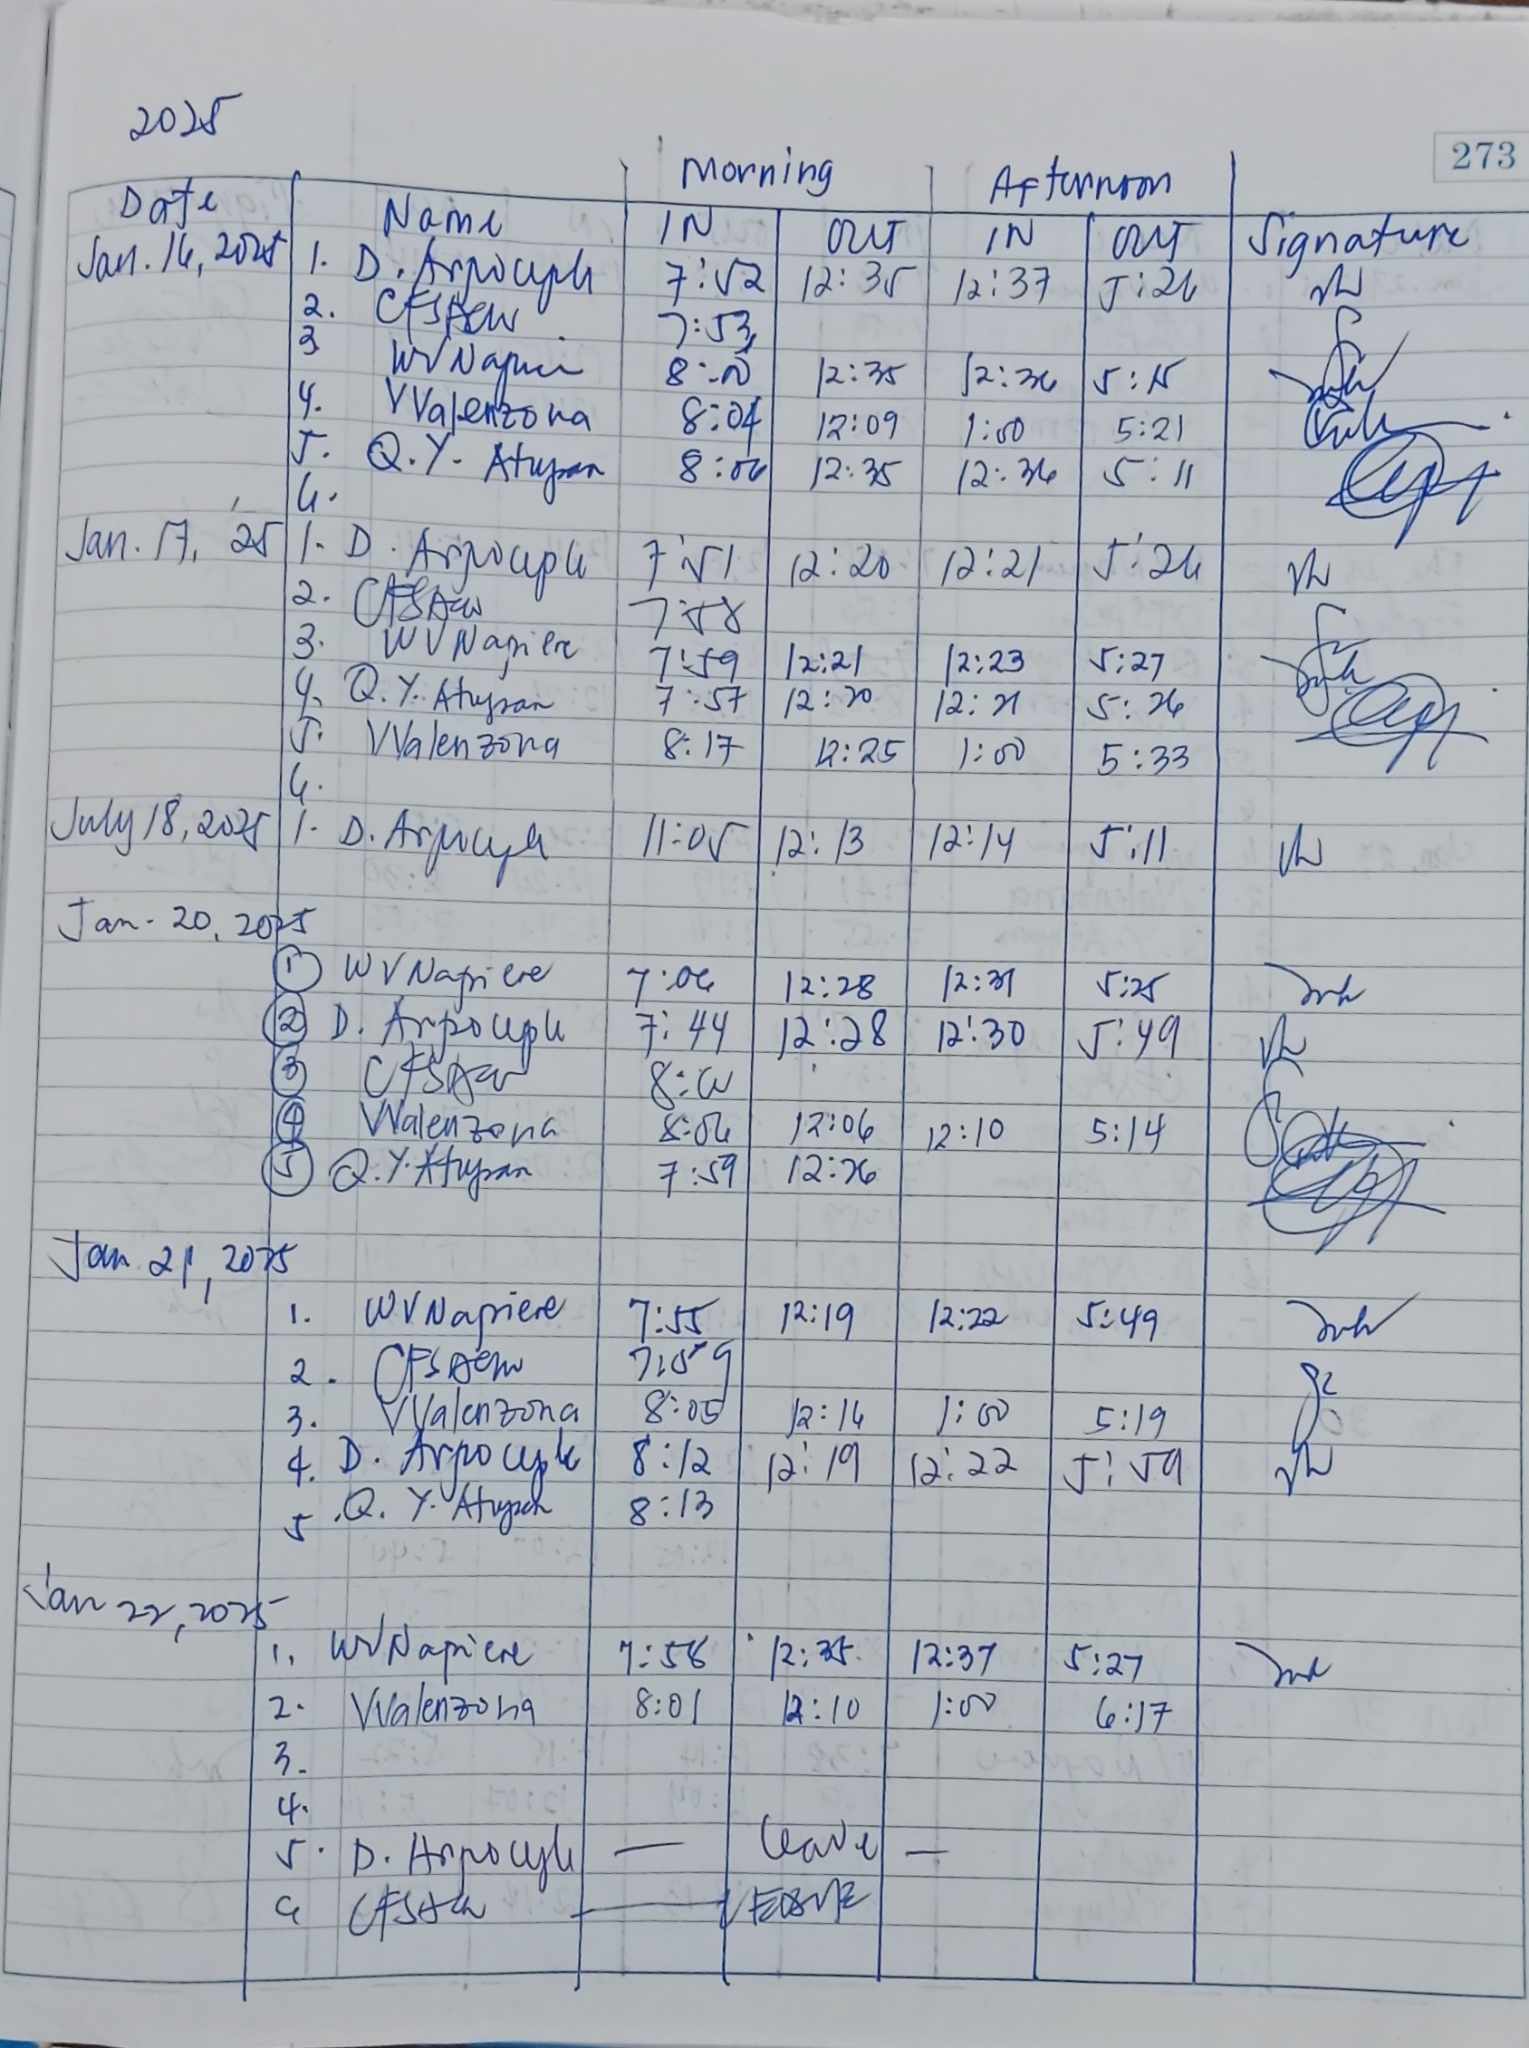 2025
273
Morning Afternoon
Date Name IN OUT IN OUT Signature
Jan. 16, 2025 1. D. Arpocyph 7:52 12:35 12:37 5:26
2. 7:53
3 WV 8:00 12:35 12:36 5:15
4. VValenzona 8:04 12:09 1:00 5:21
5. Q.Y. Atupan 8:06 12:35 12:36 5:11
6.
Jan. 17, '25 1. D. Arpocyph 7:51 12:20 12:21 5:26
2. 7:58
3. WV Napiere 7:59 12:21 12:23 5:27
4. Q.Y. Atupan 7:57 12:20 12:21 5:26
5. VValenzona 8:17 12:25 1:00 5:33
6.
July 18, 2025 1. D. Arpocyph 11:05 12:13 12:14 5:11
Jan. 20, 2025
1 WV Napiere 7:06 12:28 12:31 5:25
2 D. Arpocyph 7:44 12:28 12:30 5:49
3 8:00
4 VValenzona 8:06 12:06 12:10 5:14
5 Q.Y. Atupan 7:59 12:26
Jan. 21, 2025
1. WV Napiere 7:55 12:19 12:22 5:49
2. 7:59
3. VValenzona 8:05 12:16 1:00 5:19
4. D. Arpocyph 8:12 12:19 12:22 5:59
5 Q. Y. Atupan 8:13
Jan 22, 2025
1. WV Napiere 7:58 12:35 12:37 5:27
2. VValenzona 8:01 12:10 1:00 6:17
3.
4.
5. D. Arpocyph — leave —
6 — LEAVE